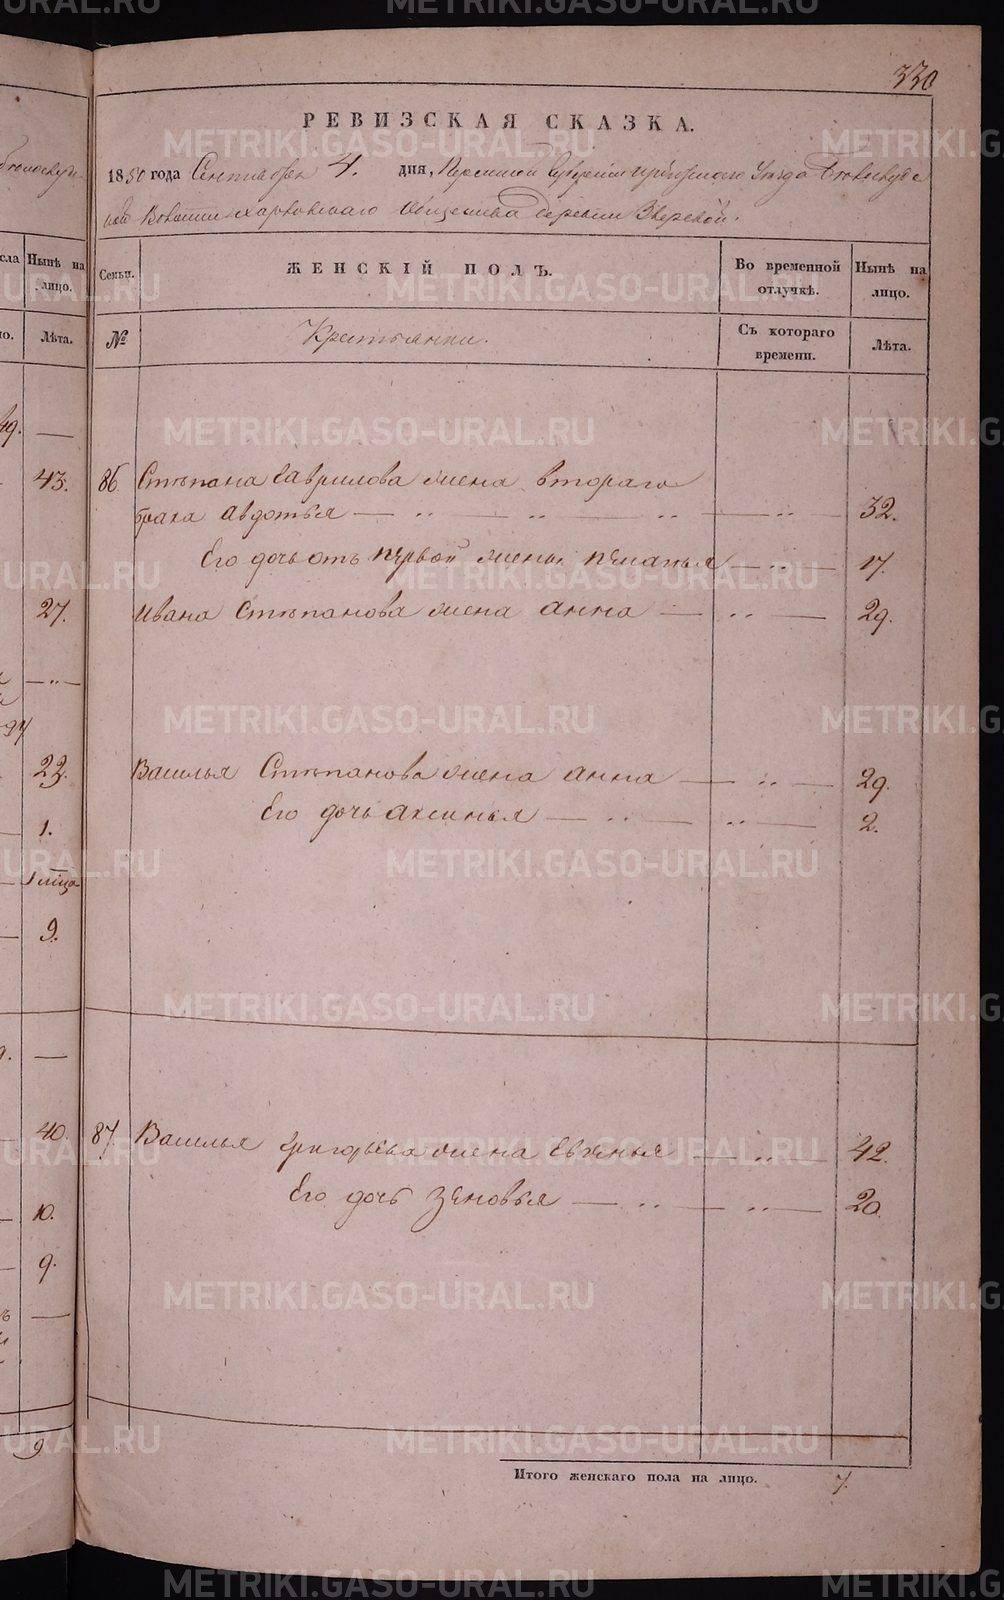 330
РЕВИЗСКАЯ СКАЗКА.
1850 года Сентября 4. дня, Пермской Губернии Ирбитскаго Уезда
Волости Харловскаго общества деревни Зверевой.
Нынѣ на лицо.
Семьи.
ЖЕНСКІЙ ПОЛЪ.
Во временной отлучкѣ.
Нынѣ на лицо.
Лѣта.
№
Крестьянки.
Съ котораго времени.
Лѣта.
43. 86. Стѣпана Гаврилова жена втораго
брака Авдотья — „ — „ — „ — „ — 32.
Его дочь отъ первой жены Пѣлагья — „ — 17.
27. Ивана Стѣпанова жена Анна — „ — 29.
— „ —
23. Василья Стѣпанова жена Анна — „ — 29.
Его дочь Аксинья — „ — „ — 2.
1.
9.
40. 87. Василья Григорьева жена Евгенья — „ — 42.
Его дочь Зѣновья — „ — „ — 20.
10.
9.
9
Итого женскаго пола на лицо. 7.
METRIKI.GASO-URAL.RU